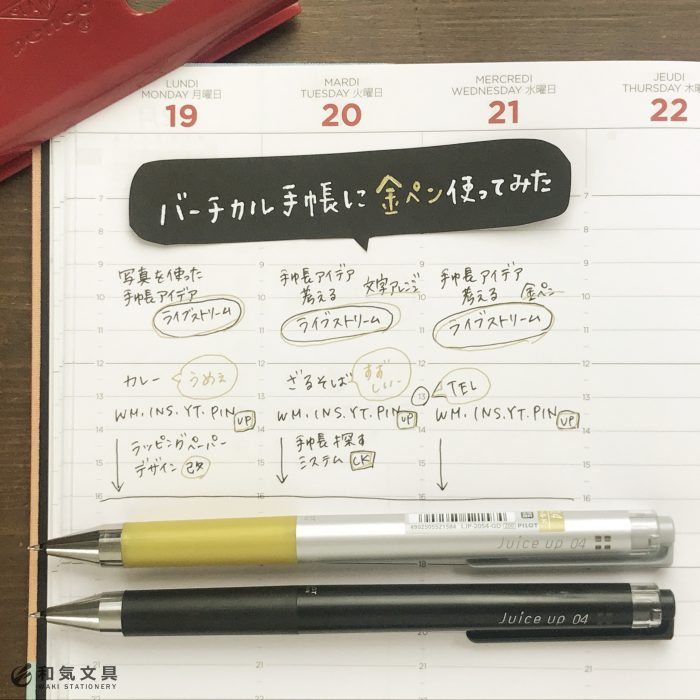 LUNDI
MONDAY 月曜日
19
MARDI
TUESDAY 火曜日
20
MERCREDI
WEDNESDAY 水曜日
21
JEUDI
THURSDAY 木
22
バーチカル手帳に金ペン使ってみた
写真を使った
手帳アイデア
ライブストリーム
手帳アイデア
考える 文字アレンジ
ライブストリーム
手帳アイデア
考える 金ペン
ライブストリーム
カレー うめぇ
WM. INS. YT. PIN UP
ラッピングペーパー
デザイン 改
ざるそば すずしぃー
WM. INS. YT. PIN UP
手帳探す
システム CK
13 TEL
WM. INS. YT. PIN UP
7
9
10
11
12
13
14
15
16
4902505521584 LJP-20S4-GD 200 PILOT
Juice up 04
Juice up 04
和気文具
WAKI STATIONERY